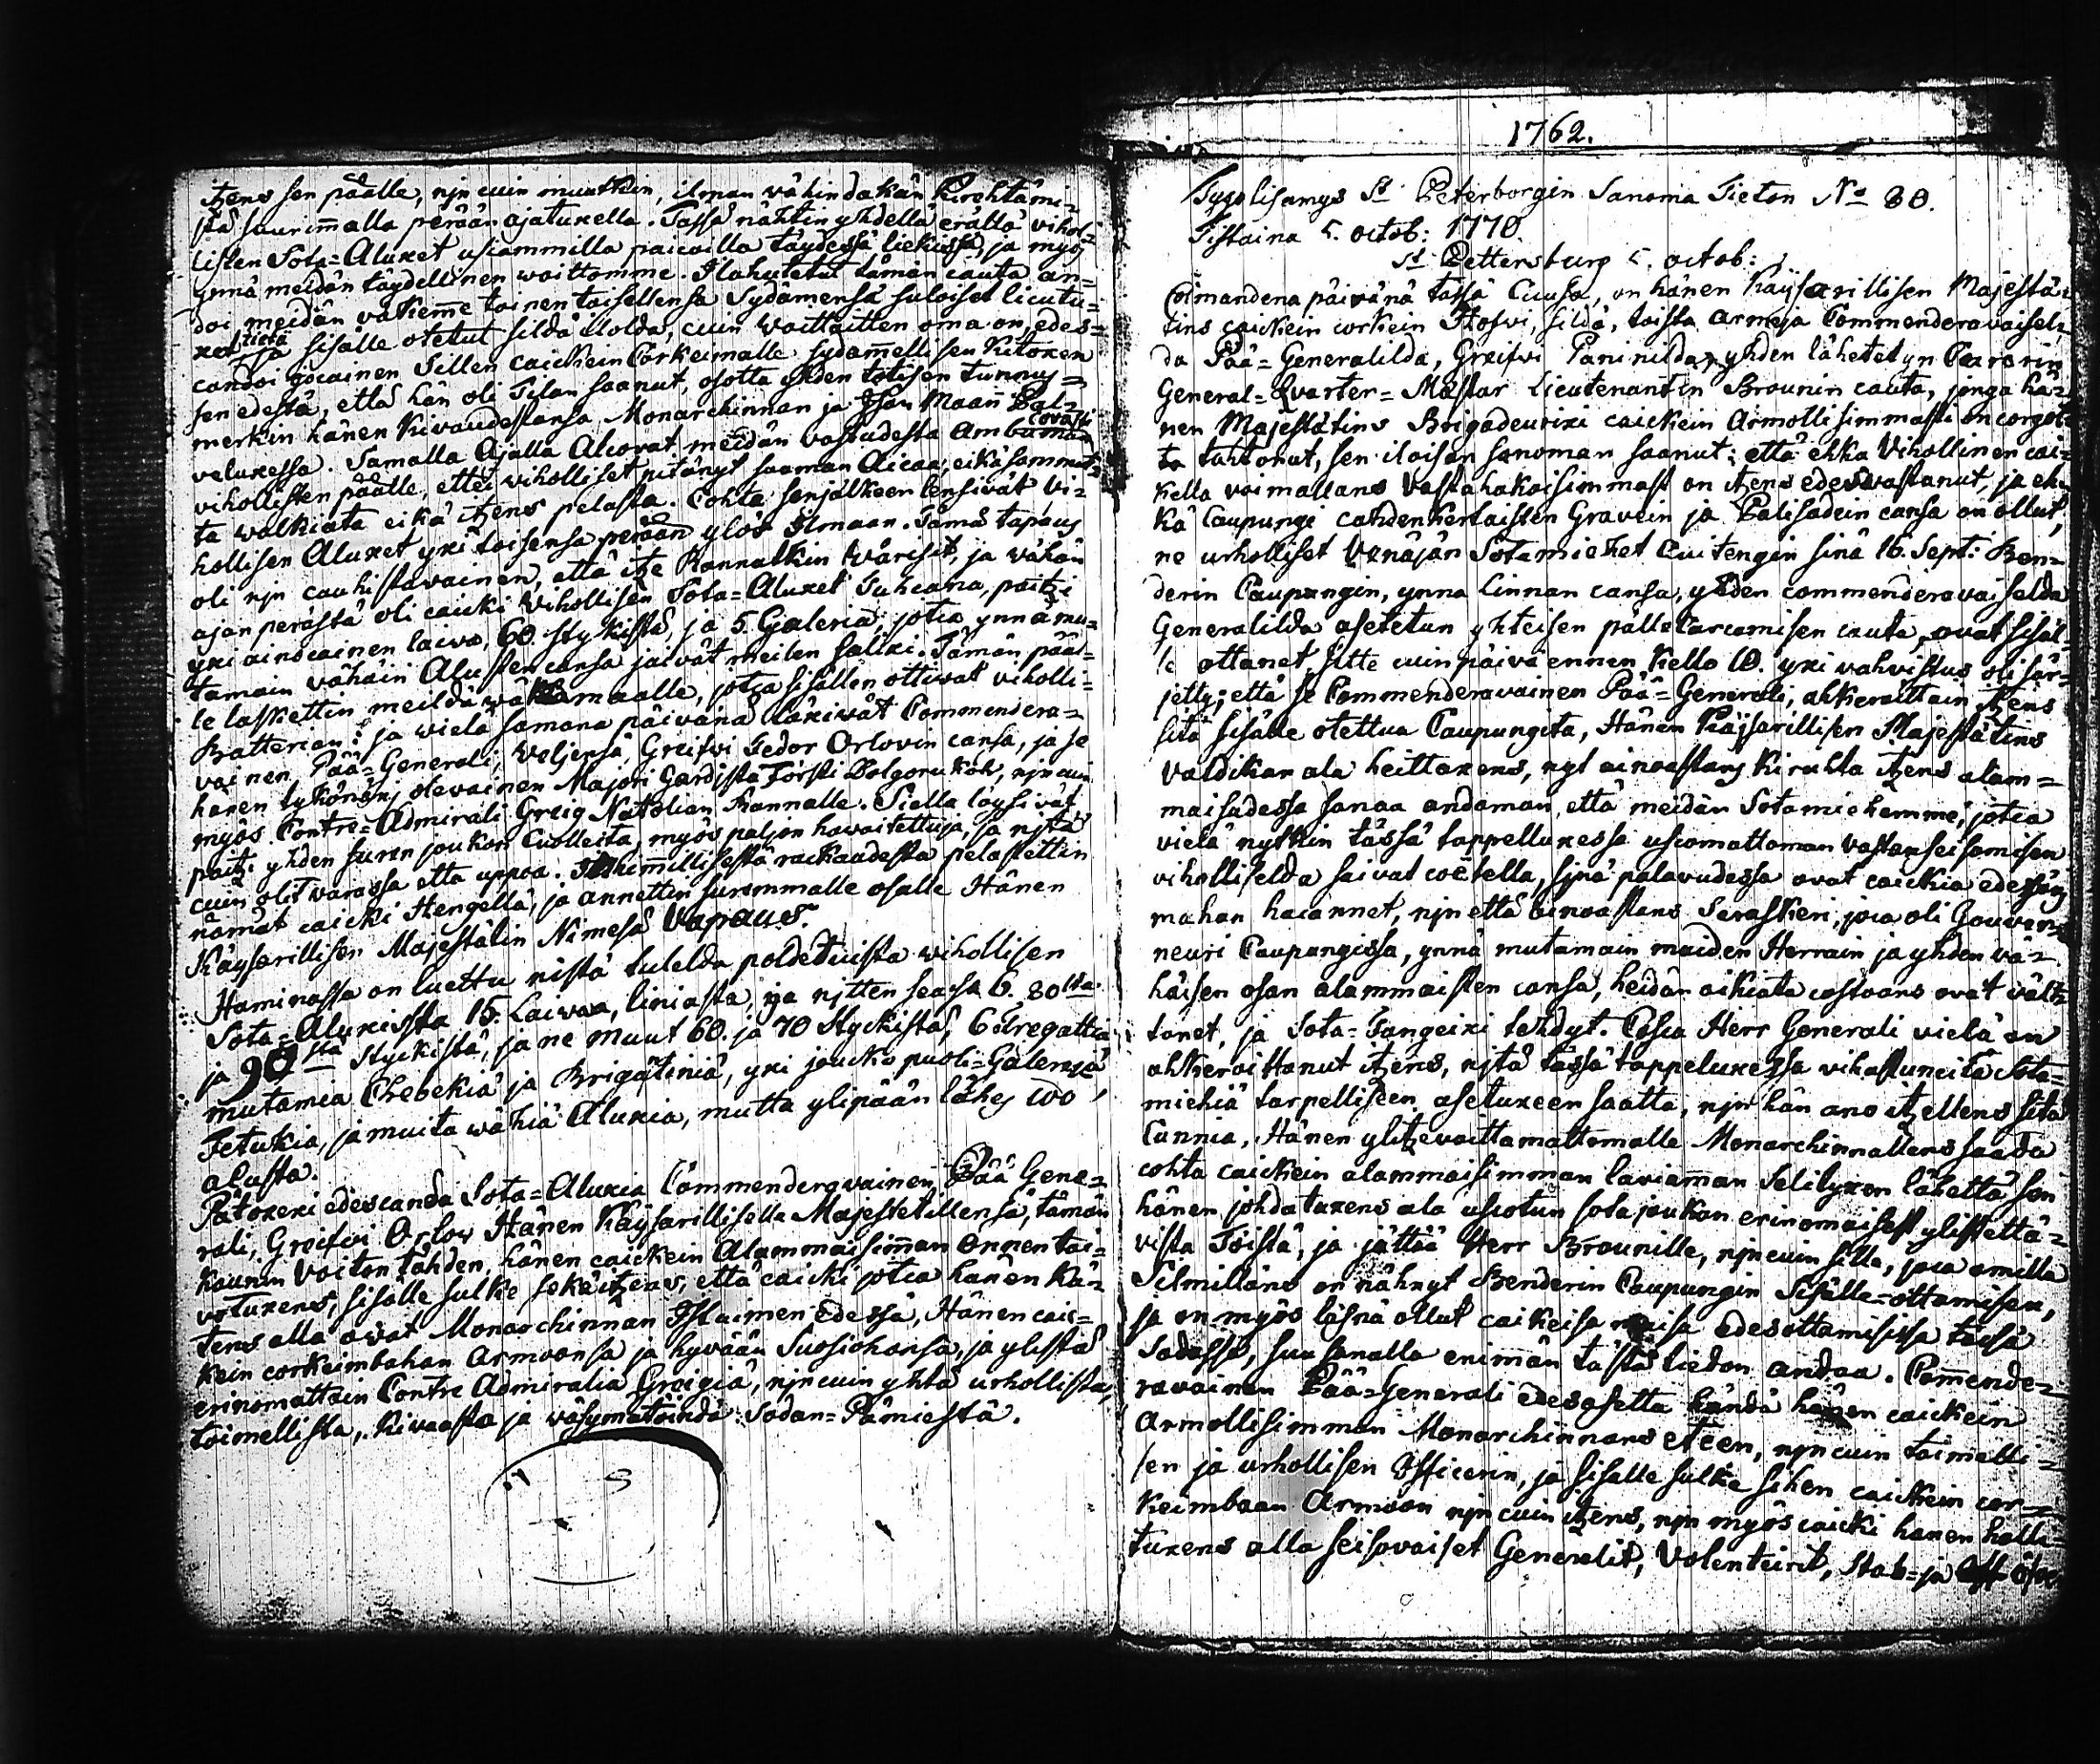 itzens sen päälle, nijn cuin muutkin, ilman vähindäkän Kirehtämi=
stä suurim̄alla perään ajatuxella. Tässä nähtin yhdellä erällä vihol=
listen Sota=Aluxet usiammilla paicoilla täydessä liekissä, ja myö
ynnä meidän täydellinen woittomme. Ilahutetut tämän cauta an=
doi meidän väkiem̄e toinen toisellensa Sydämensä suloiset licutu=
xet, ja sisälle otetut sildä ilolda, cuin Woittaitten oma on, edes=
tietä
candoi jocainen Sillen caickein Corkeimalle sydäm̄ellisen Kitoxen
sen edestä, että hän oli Tilan saanut, osotta yhden totisen tunnus=
merkin hänen Kivaudestansa, Monarchinnan ja Isän Maan̄ Pal=
veluxessa. Samalla Ajalla Alcovat meidän vastudesta Ambuman
covasti
vihollisten päälle, ettei viholliset pitänyt saaman Aicaa, eikä sammut=
ta walkiata eikä itzens pelasta. Cohta senjälkeen lensivät vi=
hollisen Aluxet yxi toisensa perään ylös Ilmaan. Tämä tapaus
oli nijn cauhistavainen, että itze Rannatkin Wärisit, ja vähän
ajan perästä oli caicki Vihollisen Sota=Aluxet Tuhcana, paitzi
yxi ainocainen laiwa, 60 styckistä, ja 5. Galeria jotca ynnä mu=
tamain vähäin Alusten cansa jäivät meilen salixi. Tämän pääl=
le laskettin meildä wäkiä maalle, jotca sisällen ottiwat viholli=
Batterian: ja wielä samana päivänä läxiwät Commendera=
vainen, Pää=Generali, Weljensä Greifwi Fedor Orlovin cansa, ja se
hänen tykönäns olevainen Majori Gardista Försti Dolgorukoh, nijn cuin
myös Contre=Admirali Greig Natolian Rannalle. Siellä löysivät
paitzi yhden suren joukon Cuolleita, myös paljon hawaitettuja, ja nijtä
cuin olit warassa että uppoa. Ihim̄illisestä rackaudesta pelastettin
nämät caicki Hengellä, ja annettin surommalle osalle Hänen
Käysarillisen Majestätin Nimesä Vapaus.
Haminassa on luettu nistä tulelda poldetuista wihollisen
Sota=Aluxista 15. Laiwaa, liniasta, ja nijtten seasa 6. 80sta
ja 90sta Styckistä, ja ne muut 60. ja 70 Styckistä, 6 Fregattia
mutamia Chebekia ja Brigätiniä, yxi joucko puoli=Galeriä
Fetukia, ja muita wähiä Aluxia, mutta ylipään lähes 100
alusta.
Pätoxexi edescanda Sota=Aluxia Commenderavainen Pää Gene=
rali, Greifwi Orlow Hänen Käysarillisella Majestetillensä, tämän
kaunin Voiton tähden, hänen caickein Alammaisim̄an Onnen toi=
votuxens, sisälle sulke sekä itzens, että caicki jotca hänen Kä=
tens alla owat Monarchinnan Istuimen edessä, Hänen caic=
kein corkeimbahan Armoonsa ja hyvään Suosiohonsa, ja ylistä
erinomattain Contre Admiralia Greigiä, nijn cuin yhtä urhollista,
toimellista, Kivaasta ja väsymätöindä Sodan=Pämiestä.
1762.
Tygölisämys St Peterborgin Sanoma Tieton No 80.
Tistaina 5. octob: 1770.
St Pettersburg 5. octob:
Colmandena päivänä tässä Cuusa, on hänen Käysarillisen Majestä=
tins caickein corkein Hofwi, sildä, toista armeja Commenderavaisel=
da Pää=Generalilda, Greifwi Paninilda, yhden lähetetyn Currorin
General=Qvarter=Mästar Lieutenantin Brounin cauta, jonga hä=
nen Majestätins Brigadeurixi caickein Armollisimmasti on corgot=
ta tahtonut, sen iloisen sanoman saanut: että ehkä Vihollinen cai=
kella voimallans Vastahakoisimmast on itzens edesvastanut, ja eh=
kä Caupungi cahdenkertaisten Gravein ja Palisadein cansa on ollut,
ne urholliset Venäjän Sotamiehet Cuitengin sinä 16. Sept: Ben=
derin Caupungin, ynnä Linnan cansa, yhden commenderavaiselda
Generalilda asetetun yhteisen pällecarcamisen cauta, ovat sisäl=
le ottanet, sitte cuin päivä ennen Kello 10. yxi vahvistus oli sär=
jetty; että se Commenderavainen Pää=Generali, ahkeroittain itzens
sitä sisälle otettua Caupungita, Hänen Käysarillisen Majestätins
valdikan ala heittäxens, nyt ainoastans kiruhta itzens alam=
maisudessa sanaa andaman, että meidän Sotamiehemme, jotca
vielä nytkin tässä tappelluxessa uscomattoman vastanseisomisen
vihollisselda saivat coëtella, sijnä palavudessa ovat caickia edessäns
mahan hacannet, nijn että ainoastans Seraskeri, joca oli Gouver=
neuri Caupungissa, ynnä mutamain muiden Herrain ja yhden vä=
häisen osan alammaisten cansa, heidän oikiata costoans ovat vält=
tänet, ja Sota=Fangeixi tehdyt. Cosca Herr Generali vielä on
ahkeroittanut itzens, nijtä tässä tappeluxessa vihastuneitä Sota=
miehiä tarpelliseen asetuxeen saatta, nijn hän ano itzellens sitä
Cunnia, Hänen ylitzevoittamattomalle Monarchinnallens saada
cohta caickein alammaisimman laviam̄an Selityxen lähettä sen
hänen johdatuxens ala uscotun sotajoukon erinomaisest ylistettä=
vistä Töistä, ja jättää Herr Brounille, nijn cuin sille, joca omilla
Silmilläns on nähnyt Benderin Caupungin Sisälle=ottamisen,
ja on myös läsnä ollut caikeisa muisa edesottamisissa täsä
Sodassa, suu sanalla enim̄än tästä tiedon andaa. Com̄ende=
ravainen Pää=Generali edesasetta händä hänen caickein
Armollisimman Monarchinnans eteen, nijn cuin toimelli=
sen ja urhollisen Officerin, ja sisälle sulke sihen caickein cor=
keimbaan Armoon nijn cuin itzens, nijn myös caicki hänen halli=
tuxens alla seisovaiset Generalit, Volenteirit, Stab=ja